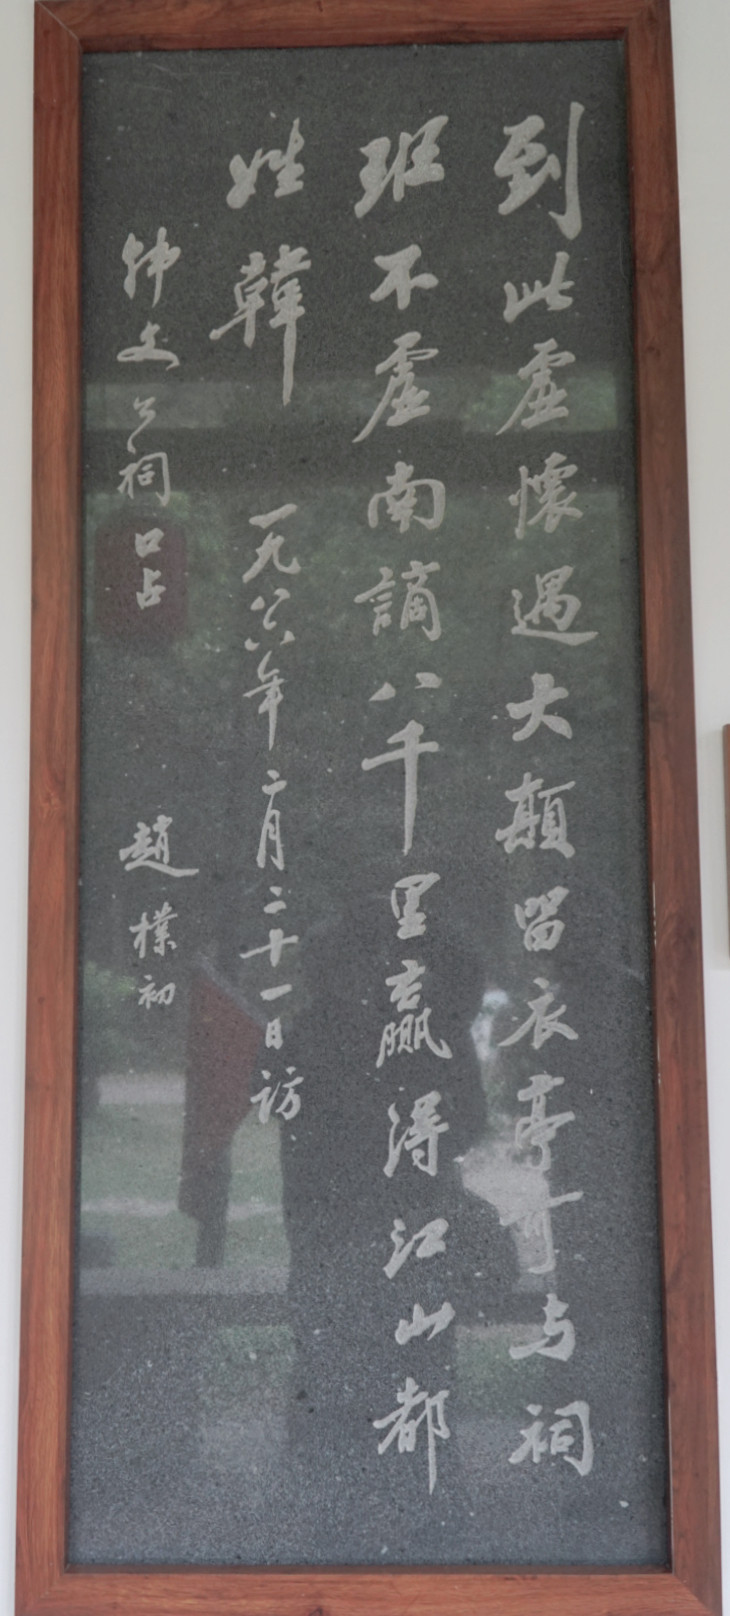 到此虚懷遇大顛留衣亭可与祠
班不虚南謫八千里贏得江山都
姓韓
一九八六年二月二十一日訪
韩文公祠口占
趙樸初